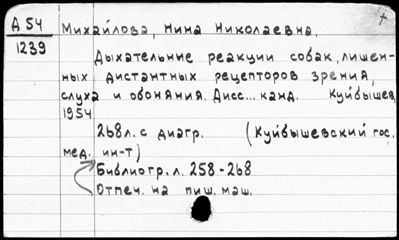 А 54
1239
Михайлова, Нина Николаевна.
Дыхательные реакции собак, лишен-
ных дистантных рецепторов зрения,
слуха и обоняния. Дисс... канд. Куйбышев,
1954
268 л. с диагр. (Куйбышевский гос.
мед. ин-т)
Библиогр. л. 258-268
Отпеч. на пиш. маш.